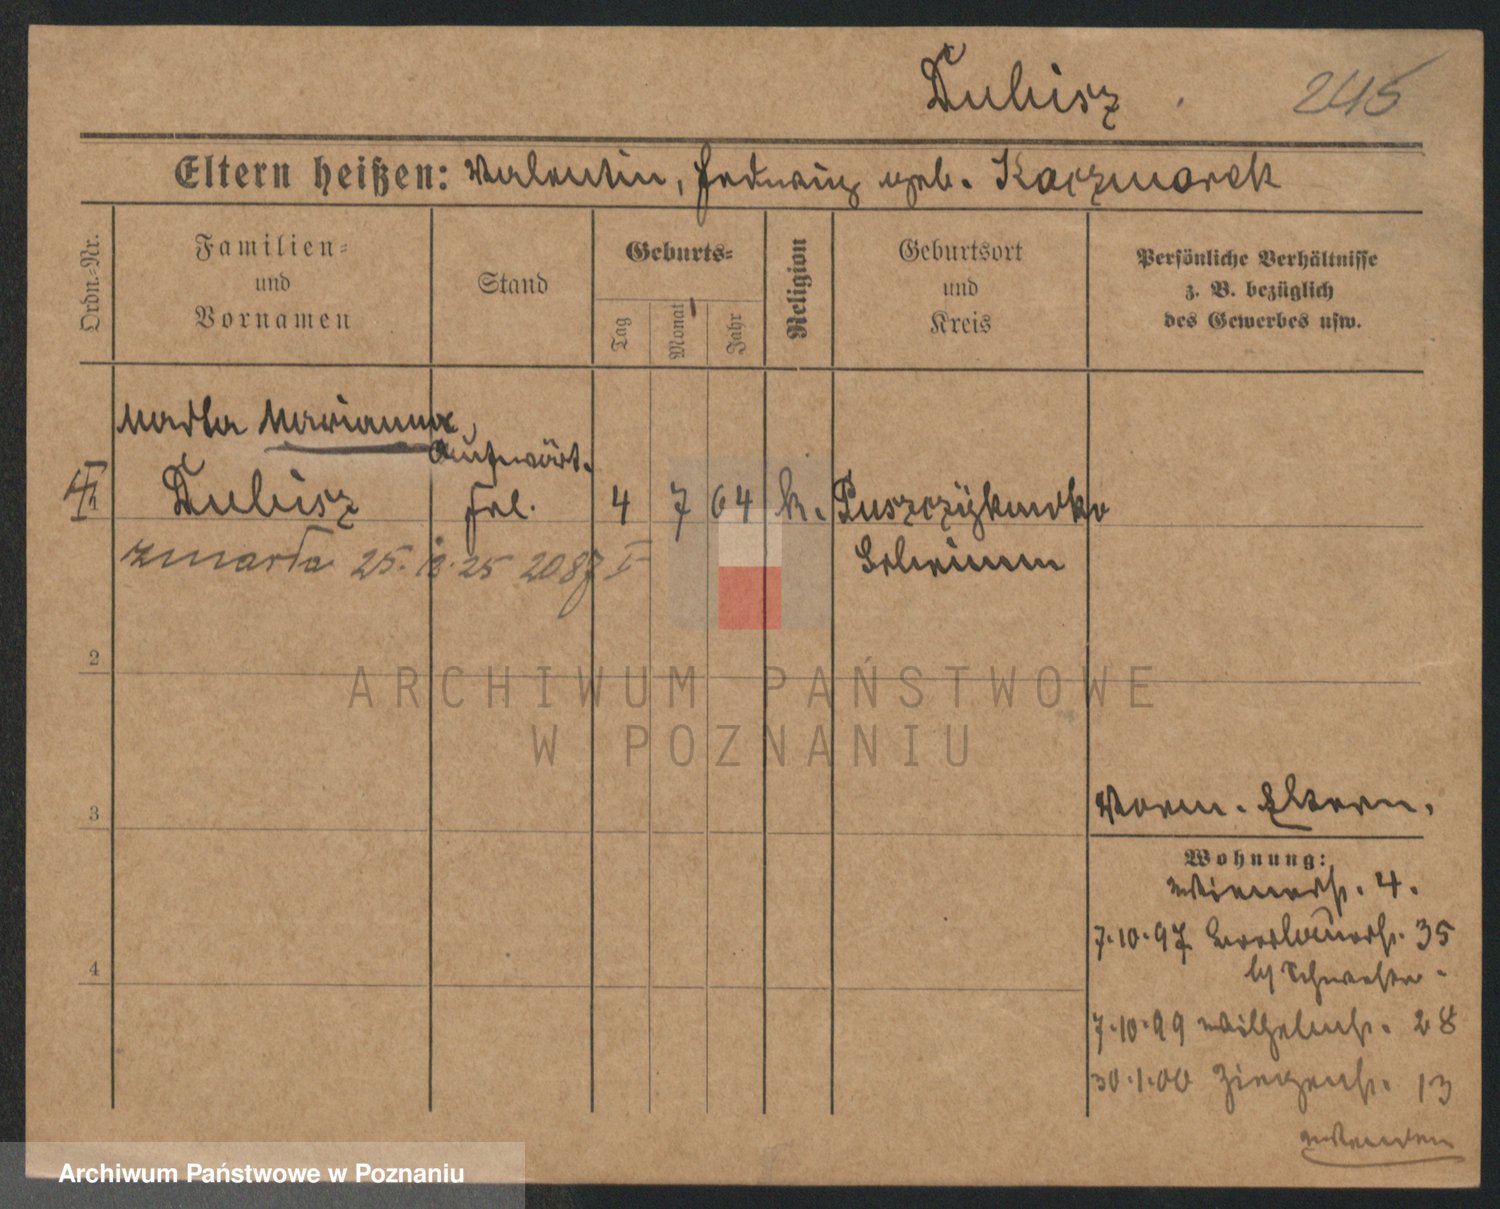 Dubisz 245
Eltern heißen: Valentin, Hedwig geb. Kaczmarek
Ordn.=Nr.
Familien=
und
Vornamen
Stand
Geburts=
Tag
Monat
Jahr
Religion
Geburtsort
und
Kreis
Persönliche Verhältnisse
z. B. bezüglich
des Gewerbes usw.
Martha Marianna,
Aufwärt.
1 Dubisz Frl. 4 7 64 k. Puszczykowko
Schrimm
zmarła 25. 12. 25 2087 I
2
3
4
Vorm. Eltern.
Wohnung:
Wienerstr. 4.
7.10.97 35
b/ Schwester.
7.10.99 Wilhelmstr. 28
30.1.00 Ziegenstr. 13
wenden
ARCHIWUM PAŃSTWOWE
W POZNANIU
Archiwum Państwowe w Poznaniu